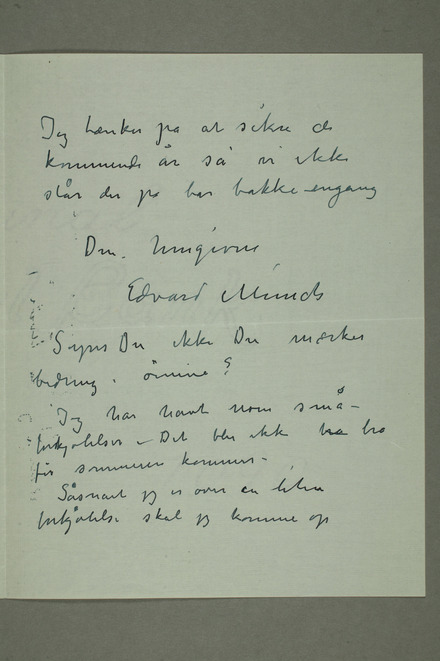 Jeg tænker på at sikre de
kommende år så vi ikke
står der på bar bakke engang
Din hengivne
Edvard Munch
Synes Du ikke Du mærker
bedring i öinene?
Jeg har havt noen små-
forkjølelser – Det blir ikke bra
før sommeren kommer –
Såsnart jeg er over en liten
forkjølelse skal jeg komme op